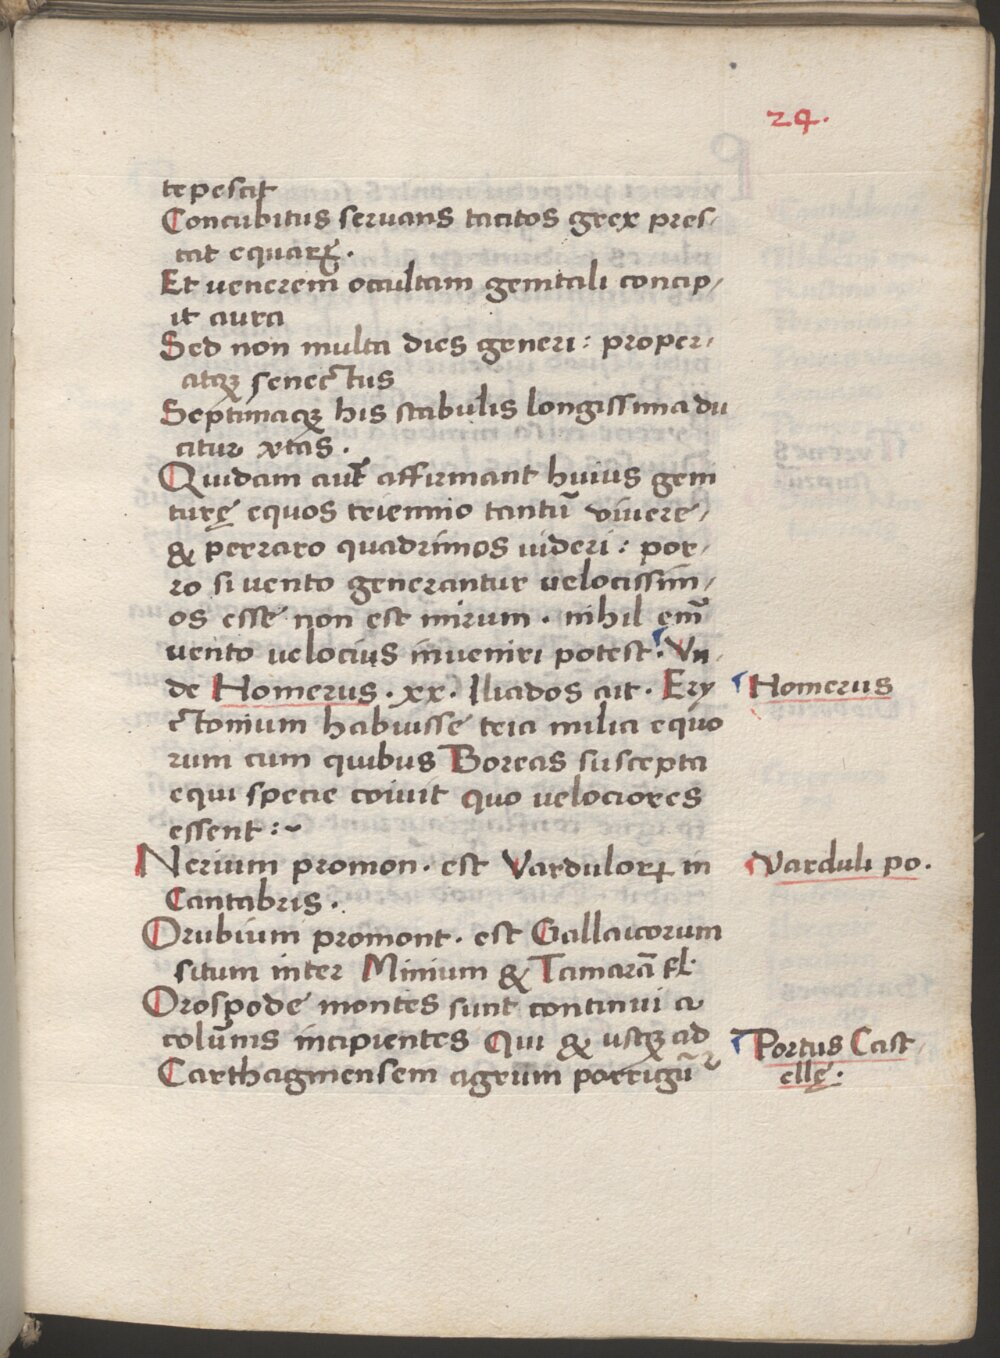 24.
tepescit
Concubitus seruans tacitos grex pres-
tat equarꝝ.
Et uenerem occultam genitali concip-
it aura
Sed non multa dies generi: proper-
atqꝫ senectus
Septimaqꝫ his stabulis longissima du
citur ætas.
Quidam aut̃ affirmant huius geni
turę equos triennio tantũ vivere,
& perraro quadrimos uideri: por-
ro si uento generantur velocissim-
os esse non est mirum. nihil em̃
uento velocius inveniri potest. Vn-
de Homerus. xx. Iliados ait. Ery
ctonium habuisse tria milia equo
rum cum quibus Boreas suscepta
equi specie coivit quo velociores
essent:~
Nerium promon. est Vardulorꝝ in
Cantabris.
Orubium promont. est Gallaicorum
situm inter Minium & Tamarã fl.
Orospede montes sunt continui a
colũnis incipientes Qui & usqꝫ ad
Carthaginensem agrum porrigũr
Homerus
Varduli po.
Portus Cast-
ellę.